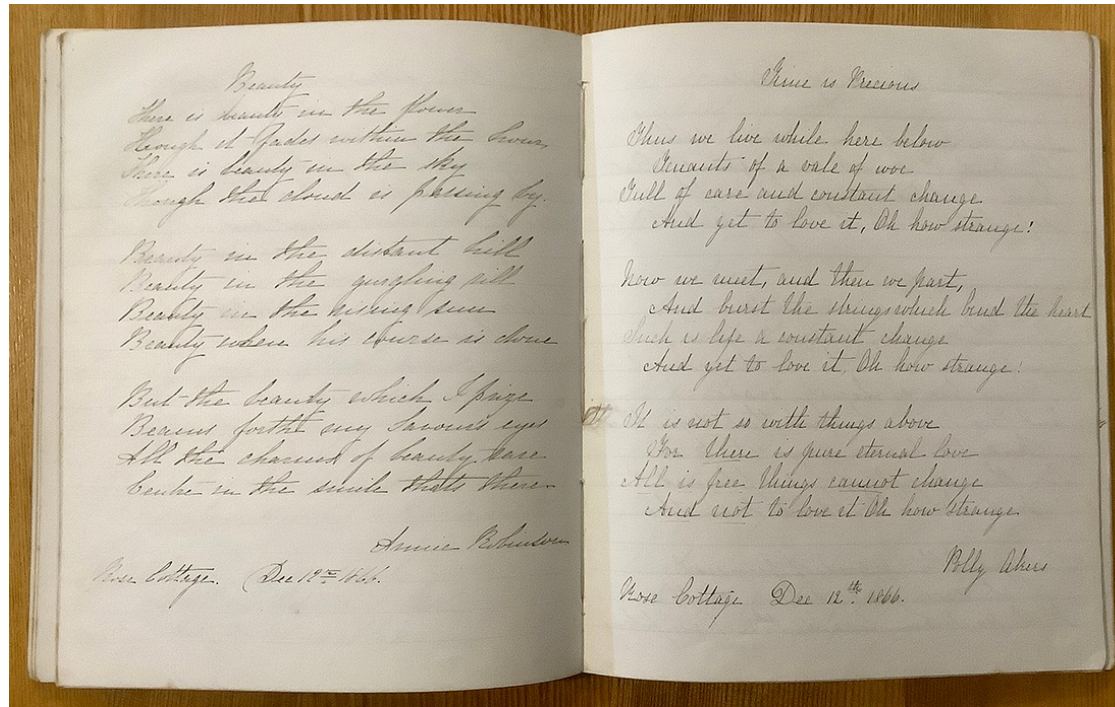 Beauty
There is beauty in the flower
Though it fades within the hour,
There is beauty in the sky
Though the cloud is passing by.
Beauty in the distant hill
Beauty in the gurgling rill
Beauty in the rising sun
Beauty when his course is done
But the beauty which I prize
Beams forth my Saviour's eyes
All the charms of beauty rare
Centre in the smile thats there.
Annie Robinson
Rose Cottage. Dec 12th 1866.
Time is Precious
Thus we live while here below
Tenants of a vale of woe
Full of care and constant change
And yet to love it, Oh how strange!
Now we meet, and then we part,
And burst the strings which bind the heart
Such is life a constant change
And yet to love it, Oh how strange!
It is not so with things above
For there is pure eternal love
All is free things cannot change
And not to love it Oh how strange
Polly Akers
Rose Cottage Dec 12th. 1866.